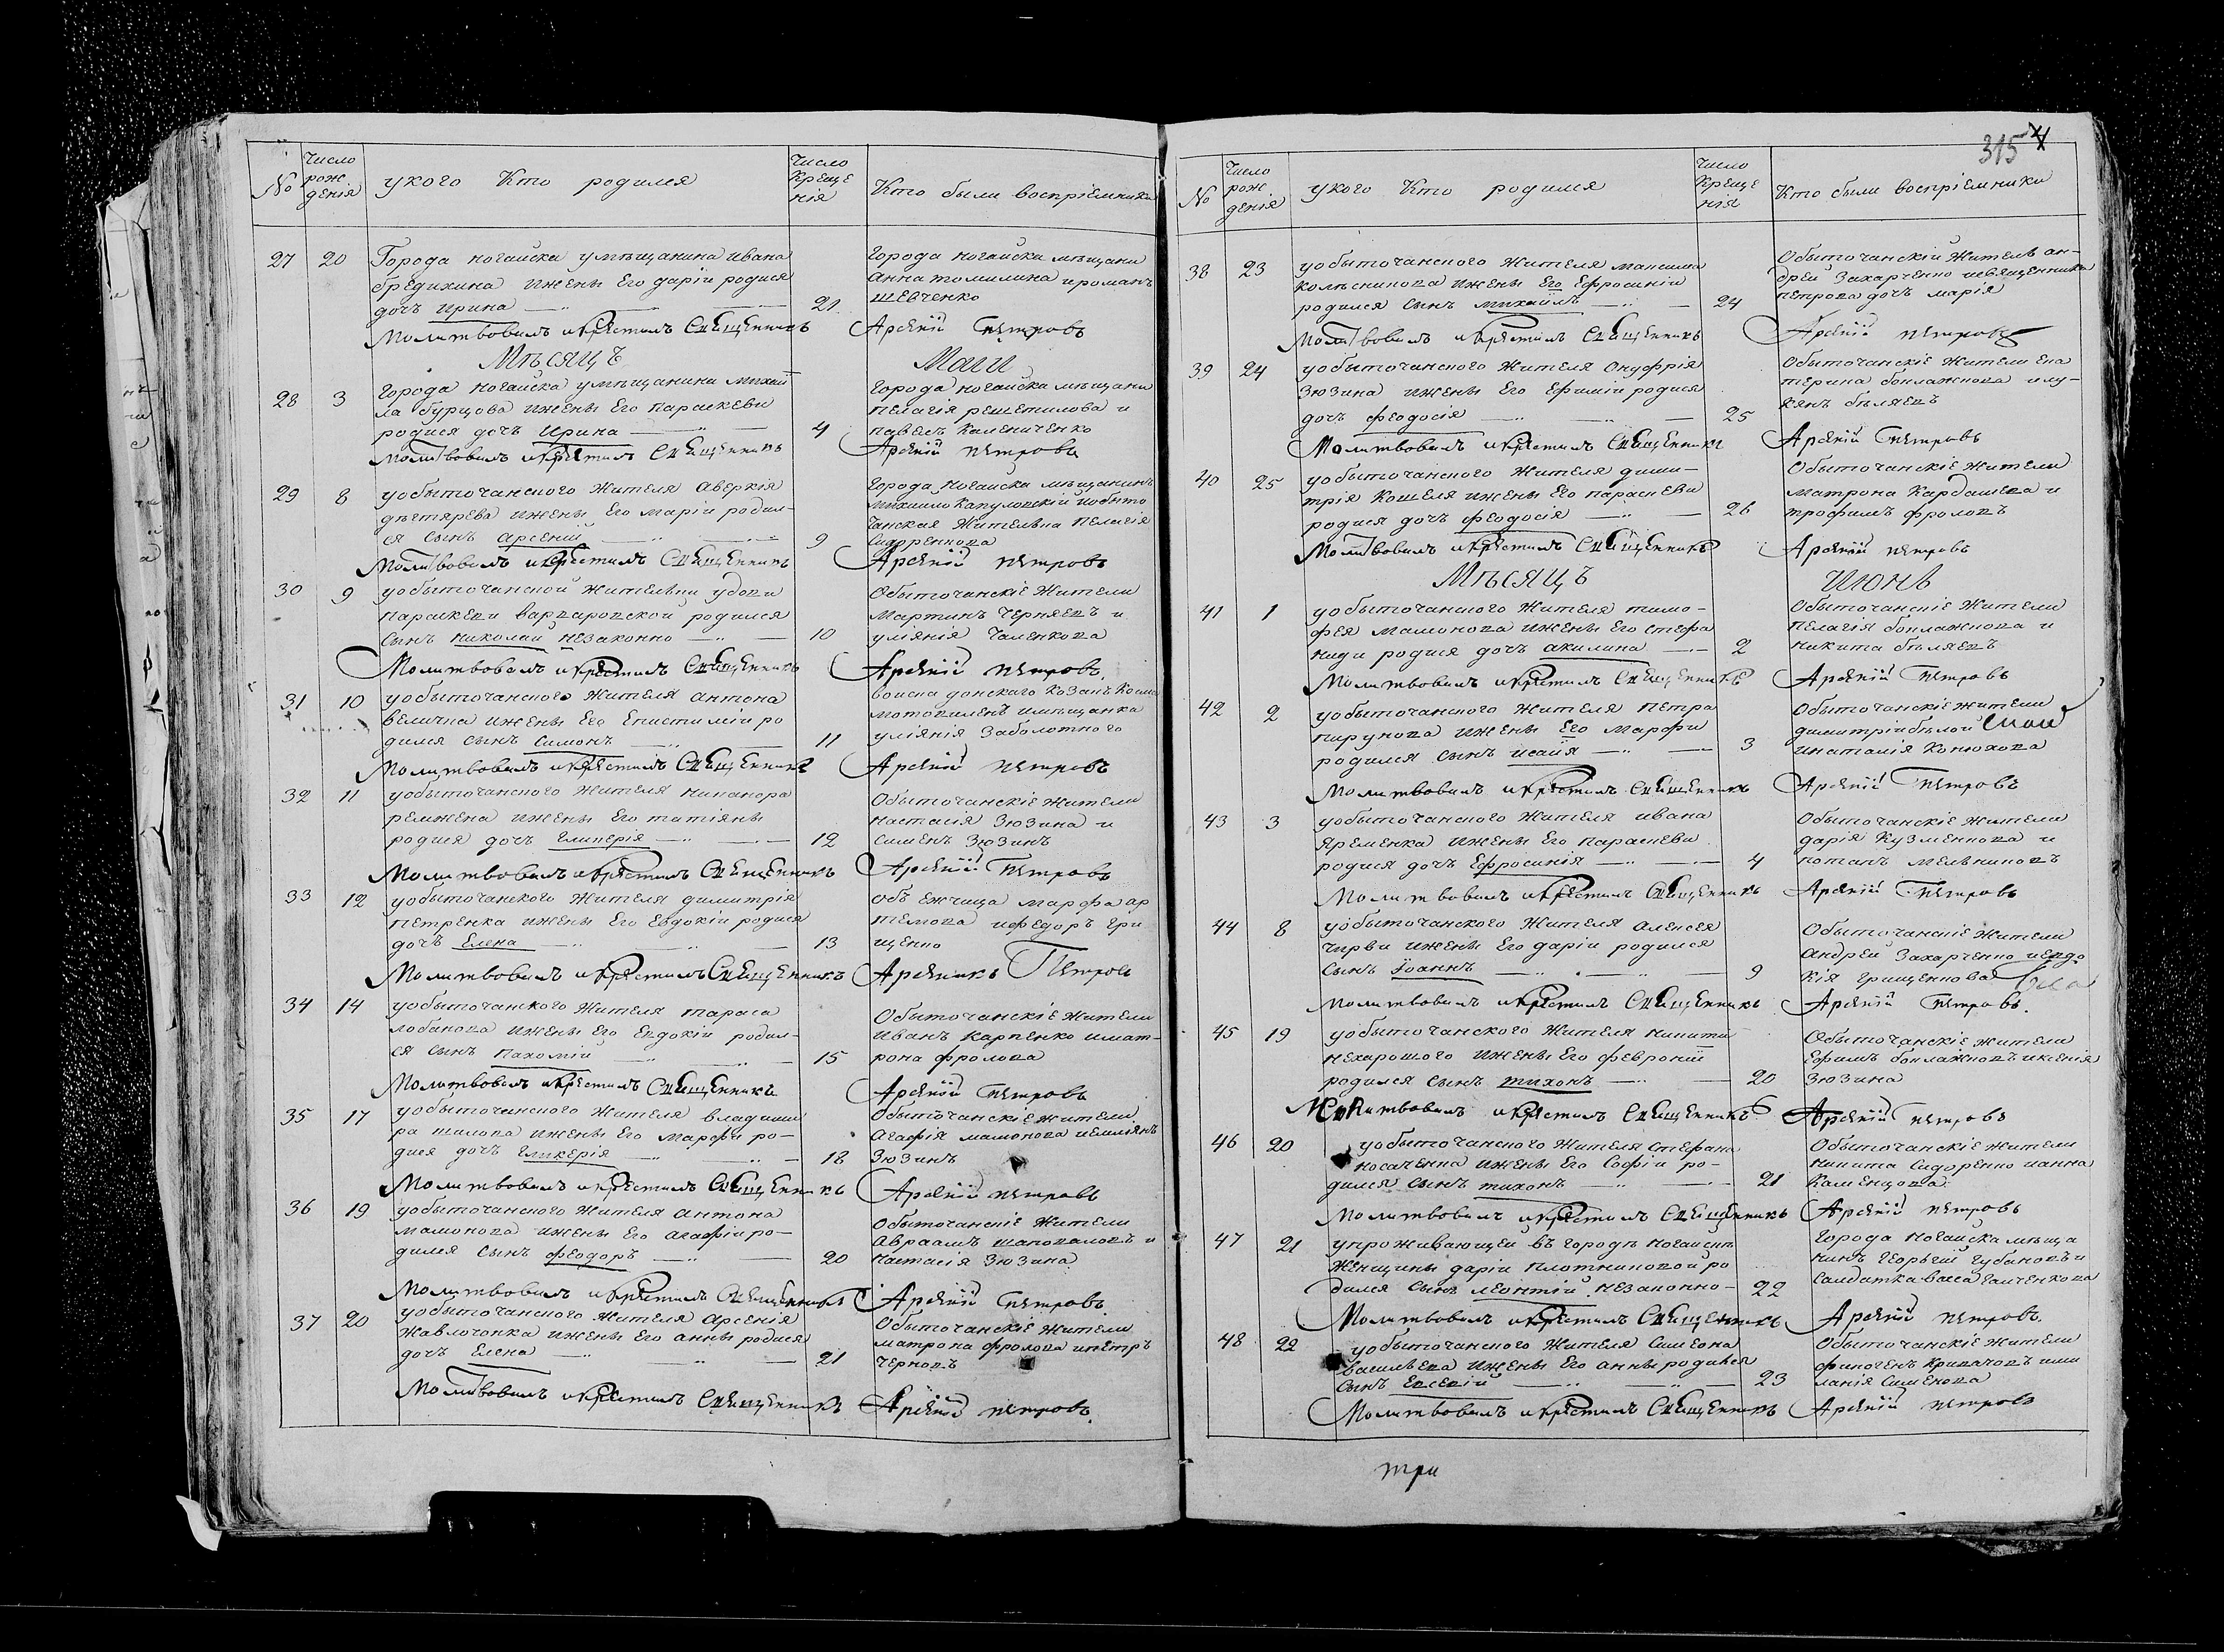 №
Число
рож
денія
укого Кто родился
Число
Креще
нія
Кто были воспріемники
27 20 Города ногайска умѣщанина ивана
бредихина ижены Его даріи родися
дочь ирина 21
Города ногайска мѣщани
анна томилина и романъ
шевченко
Молитвовалъ и крестилъ Священникъ Арсеній Петровъ
Мѣсяцъ Маии
28 3 Города ногайска умѣщанина михаи
ла бурцова ижены Его параскеви
родися дочь Ирина 4
Города ногайска мѣщани
пелагія решетилова и
павелъ калениченко
Молитвовалъ и крестилъ Священникъ Арсеній петровъ
29 8 уобыточанского Жителя аверкія
дѣгтярева ижены Его маріи родил-
ся сынъ арсеній 9
Города Ногайска мѣщанинъ
михаило Капуловскій иобыто
чанская Жителька Пелагія
Сидоренкова
Молитвовалъ и крестилъ Священникъ Арсеній петровъ
30 9 уобыточанской Жителѣки удови
параскеви варваровской родился
Сынъ николай незаконно 10
Обыточанскіе Жители
Мартинъ Черняевъ и
улиянія Чаленкова
Молитвовалъ и крестилъ Священникъ Арсеній петровъ
31 10 уобыточанского Жителя антона
величка ижены Его Епистиміи ро
дился сынъ Симонъ 11
войска донскаго Козакъ Косма
мотовиленъ имѣщанка
улиянія Заболотного
Молитвовалъ и крестилъ Священникъ Арсеній петровъ
32 11 уобыточанского Жителя никанора
ремжена ижены Его татіяны
родися дочь гликерія 12
Обыточанскіе Жители
настасія Зюзина и
Сименъ Зюзинъ
Молитвовалъ и крестилъ Священникъ Арсеній Петровъ
33 12 уобыточанского Жителя димитрія
петренка ижены Его Евдокіи родися
дочь Елена 13
марфа ар
темова ифедоръ гри
щенко
Молитвовалъ и крестилъ Священникъ Петровъ
34 14 уобыточанского Жителя тараса
лобанова ижены Его Евдокіи родил-
ся сынъ Пахомій 15
Обыточанскіе Жители
иванъ Карпенко имат-
рона фролова
Молитвовалъ и крестилъ Священникъ Арсеній Петровъ
35 17 уобыточанского Жителя владими
ра шилова ижены Его марфи ро-
дися дочь гликерія 18
Обыточанскіе жители
агафія мамонова иемліянъ
Зюзинъ
Молитвовалъ и крестилъ Священникъ Арсеній петровъ
36 19 уобыточанского Жителя антона
мамонова ижены Его агафіи ро-
дился сынъ феодоръ 20
Обыточанскіе Жители
авраамъ шаповаловъ и
настасія Зюзина
Молитвовалъ и крестилъ Священникъ Арсеній петровъ
37 20 уобыточанского Жителя арсенія
Жавлочонка ижены Его анны родися
дочь Елена 21
Обыточанскіе Жители
матрона фролова ипетръ
Черновъ
Молитвовалъ и крестилъ Священникъ Арсеній петровъ
315
№
Число
рож
денія
укого Кто родился
Число
Креще
нія
Кто были воспріемники
38 23 уобыточанского Жителя максима
колѣсникова ижены Его Ефросиніи
родился Сынъ михаилъ 24
Обыточанскій Житель ан-
дрей Захарченко исвященника
петрова дочь марія
Молитвовалъ и крестилъ Священникъ Арсеній петровъ
39 24 уобыточанского Жителя Онуфрія
Зюзина ижены Его Ефиміи родися
дочь феодосія 25
Обыточанскіе Жители Ека
терина боклажкова илу-
кянъ бѣляевъ
Молитвовалъ и крестилъ Священникъ Арсеній Петровъ
40 25 уобыточанского Жителя дими-
трія Кошеля ижены Его параскеви
родися дочь феодосія 26
Обыточанскіе Жители
матрона Кардашева и
трофимъ фроловъ
Молитвовалъ и крестилъ Священникъ Арсеній петровъ
Мѣсяцъ Июнь
41 1 уобыточанского Жителя тимо-
фея мамонова ижены Его стефа
ниди родися дочь акилина 2
Обыточанскіе Жители
Пелагія боклажкова и
никита бѣляевъ
Молитвовалъ и крестилъ Священникъ Арсеній Петровъ
42 2 уобыточанского Жителя Петра
пирунова ижены Его Марфи
родился сынъ исаія 3
Обыточанскіе жители
димитрій бѣлой
инаталія Конюхова
Молитвовалъ и крестилъ Священникъ Арсеній Петровъ
43 3 уобыточанского Жителя ивана
яременка ижены Его параскеви
родися дочь Ефросинія 4
Обыточанскіе Жители
дарія Кузменкова и
потапъ мельниковъ
Молитвовалъ и крестилъ Священникъ Арсеній Петровъ
44 8 уобыточанского Жителя алексея
чирви ижены Его даріи родился
сынъ Іоаннъ 9
Обыточанскіе Жители
андрей Захарченко иевдо
кія грищенкова
Молитвовалъ и крестилъ Священникъ Арсеній петровъ
45 19 уобыточанского Жителя никити
нехорошого ижены Его февроніи
родился сынъ тихонъ 20
Обыточанскіе жители
Ефимъ боклажковъ иксенія
Зюзина
Молитвовалъ и крестилъ Священникъ Арсеній петровъ
46 20 уобыточанского Жителя стефана
носаченка ижены Его Софіи ро-
дился сынъ тихонъ 21
Обыточанскіе жители
никита Сидоренко ианна
Каменцова
Молитвовалъ и крестилъ Священникъ Арсеній петровъ
47 21 упроживающей въ городѣ ногайскѣ
Женщины даріи Плотниковой ро
дился сынъ леонтій незаконно 22
Города Ногайска мѣща
нинъ Георьгій Губановъ и
салдатка васа галченкова
Молитвовалъ и крестилъ Священникъ Арсеній петровъ
48 22 уобыточанского Жителя Симеона
василѣева ижены Его анны родился
Сынъ Евсевій 23
Обыточанскіе Жители
финогенъ Кривачовъ ими
ланія Сименова
Молитвовалъ и крестилъ Священникъ Арсеній петровъ
три